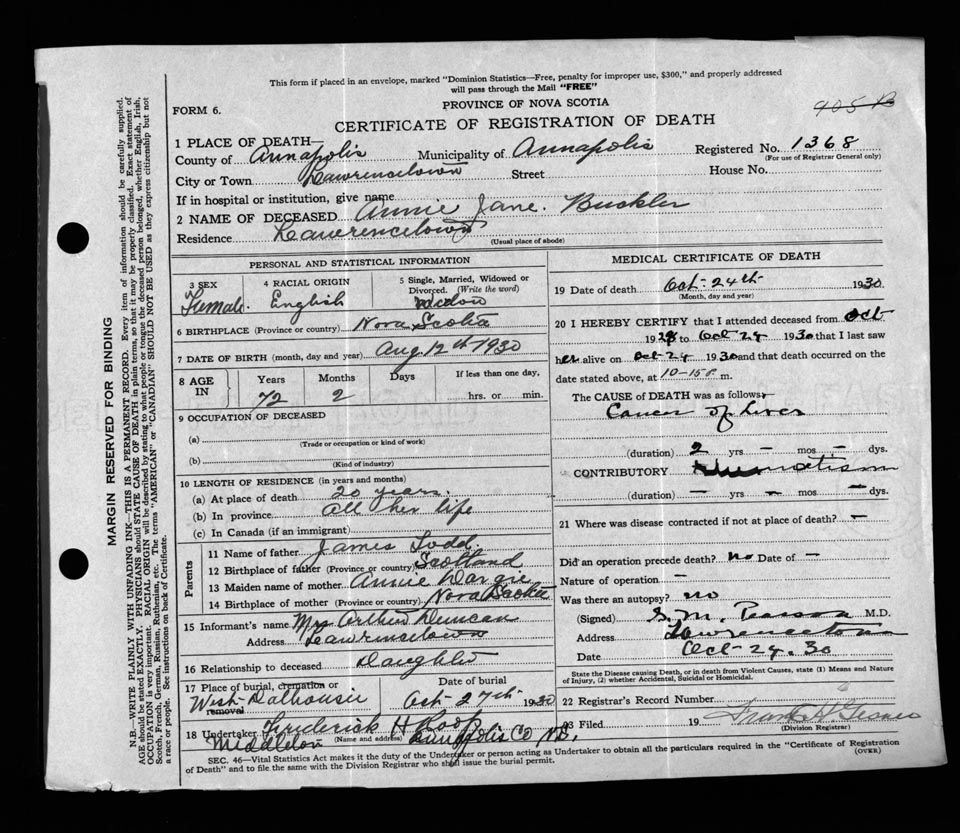 This form if placed in an envelope, marked "Dominion Statistics—Free, penalty for improper use, $300," and properly addressed
will pass through the Mail "FREE"
FORM 6.
PROVINCE OF NOVA SCOTIA
905 B
CERTIFICATE OF REGISTRATION OF DEATH
1 PLACE OF DEATH
County of Annapolis Municipality of Annapolis Registered No. 1368
(For use of Registrar General only)
City or Town Lawrencetown Street House No.
If in hospital or institution, give name
2 NAME OF DECEASED Annie Jane Buckler
Residence Lawrencetown
(Usual place of abode)
PERSONAL AND STATISTICAL INFORMATION
3 SEX 4 RACIAL ORIGIN 5 Single, Married, Widowed or
Divorced. (Write the word)
Female English
6 BIRTHPLACE (Province or country) Nova Scotia
7 DATE OF BIRTH (month, day and year) Aug 12th 1930
8 AGE IN Years Months Days If less than one day,
72 2 hrs. or min.
9 OCCUPATION OF DECEASED
(a)
(Trade or occupation or kind of work)
(b)
(Kind of industry)
10 LENGTH OF RESIDENCE (in years and months)
(a) At place of death 20 years.
(b) In province all her life
(c) In Canada (if an immigrant)
Parents
11 Name of father James Todd
12 Birthplace of father (Province or country) Scotland
13 Maiden name of mother Annie Dargie
14 Birthplace of mother (Province or country) Nova Scotia
15 Informant's name Mrs Arthur Duncan
Address Lawrencetown
16 Relationship to deceased Daughter
17 Place of burial, cremation or removal Date of burial
West Dalhousie Oct 27th 1930
18 Undertaker Frederick H Roop
Middleton (Name and address) Annapolis Co N.S.
MEDICAL CERTIFICATE OF DEATH
19 Date of death Oct- 24th 1930
(Month, day and year)
20 I HEREBY CERTIFY that I attended deceased from Oct
1928 to Oct-24 1930 that I last saw
her alive on Oct-24 1930 and that death occurred on the
date stated above, at 10-15 P. m.
The CAUSE of DEATH was as follows:
Cancer of Liver
(duration) 2 yrs – mos – dys.
CONTRIBUTORY Rheumatism
(duration) – yrs – mos – dys.
21 Where was disease contracted if not at place of death? –
Did an operation precede death? no Date of –
Nature of operation –
Was there an autopsy? no
(Signed) M.D.
Address Lawrencetown
Date Oct-29.30
State the Disease causing Death, or in death from Violent Causes, state (1) Means and Nature
of Injury, (2) whether Accidental, Suicidal or Homicidal.
22 Registrar's Record Number
23 Filed 19
(Division Registrar)
SEC. 46—Vital Statistics Act makes it the duty of the Undertaker or person acting as Undertaker to obtain all the particulars required in the "Certificate of Registration
of Death" and to file the same with the Division Registrar who shall issue the burial permit.
(OVER)
MARGIN RESERVED FOR BINDING
N.B.—WRITE PLAINLY WITH UNFADING INK—THIS IS A PERMANENT RECORD. Every item of information should be carefully supplied.
AGE should be stated EXACTLY. PHYSICIANS should STATE CAUSE OF DEATH in plain terms, so that it may be properly classified. Exact statement of
OCCUPATION is very important. RACIAL ORIGIN will be described by stating to what people or tongue the deceased person belonged, whether English, Irish,
Scotch, French, German, Russian, Ruthenian, etc. The terms "AMERICAN" or "CANADIAN" SHOULD NOT BE USED as they express citizenship but not
a race or people. See instructions on back of Certificate.